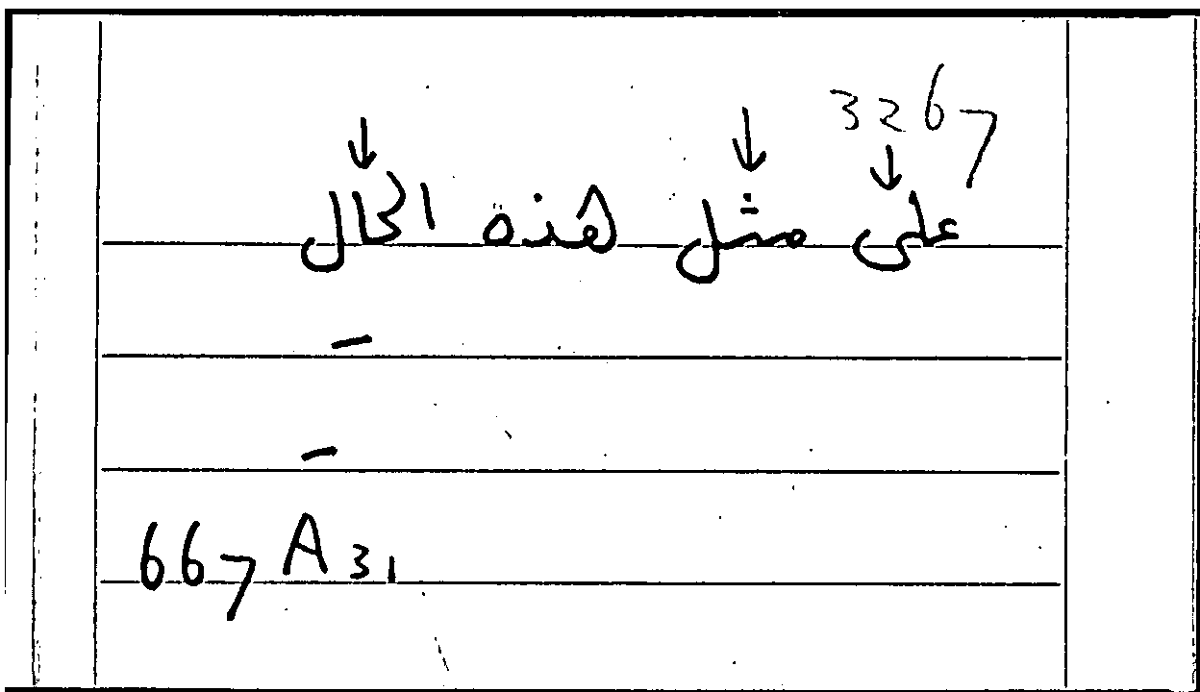 3267
↓ ↓ ↓
على مثل هذه الحال
–
–
667 A 31